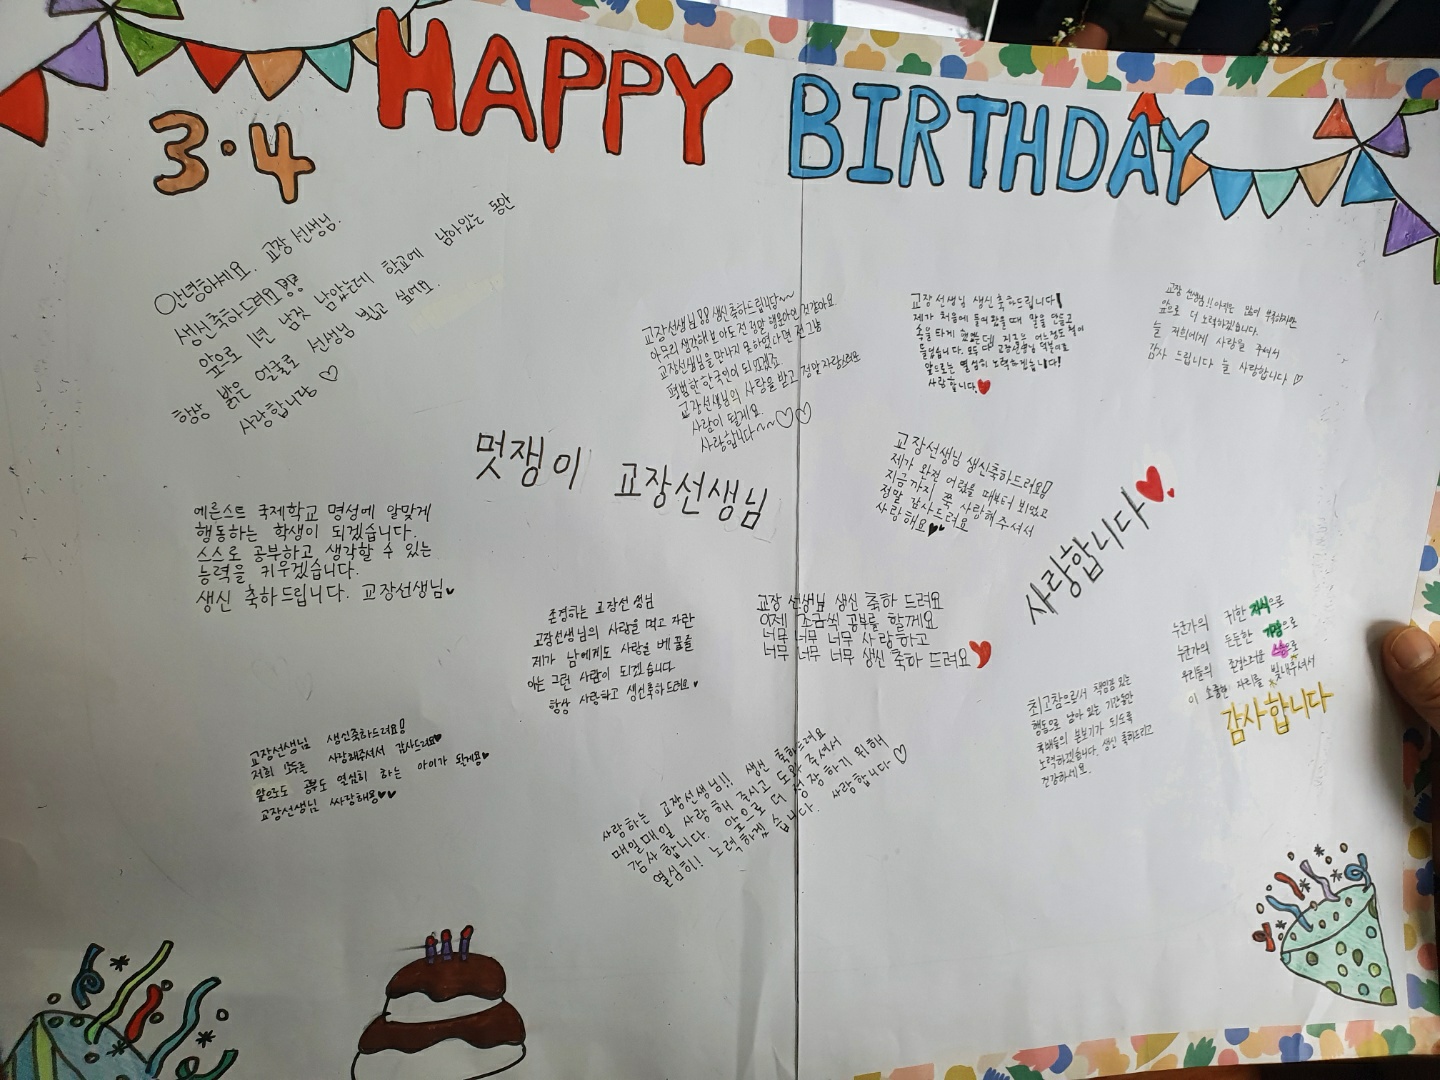 HAPPY BIRTHDAY
3·4
안녕하세요. 교장 선생님.
생신축하드려요!!
앞으로 1년 남짓 남았는데 학교에 남아있는 동안
항상 밝은 얼굴로 선생님 뵙고 싶어요.
사랑합니당♡
교장선생님!! 생신축하드립니당~~
아무리 생각해 보아도 전 정말 행운아인 것같아요.
교장선생님을 만나지 못하였다면 전 그냥
평범한 한국인이 되었겠죠
교장선생님의 사랑을 받고 정말 자랑스러운
사람이 될게요.
사랑합니다~~♡♡
교장선생님 생신축하드립니다!
제가 처음에 들어왔을때 말을 안듣고
속을 타게 했었는데 지금은 어느정도 철이
들었습니다. 모두 다 교장선생님 덕분이죠
앞으로는 열심히 노력하겠습니다!
사랑합니다.♥
교장 선생님!! 아직은 많이 부족하지만
앞으로 더 노력하겠습니다.
늘 저희에게 사랑을 주셔서
감사 드립니다 늘 사랑합니다♡
멋쟁이 교장선생님
교장선생님 생신축하드려요!!
제가 완전 어렸을 때부터 뵈었고
지금까지 쭉 사랑해주셔서
정말 감사드려요
사랑해요♥♥
사랑합니다♥
예른스트 국제학교 명성에 알맞게
행동하는 학생이 되겠습니다.
스스로 공부하고, 생각할 수 있는
능력을 키우겠습니다.
생신 축하드립니다. 교장선생님♥
존경하는 교장선생님
교장선생님의 사랑을 먹고 자란
제가 남에게도 사랑을 베풀줄
아는 그런 사람이 되겠습니다
항상 사랑하고 생신축하드려요♥
교장 선생님 생신 축하 드려요
이제 조금씩 공부를 할게요
너무 너무 너무 사랑하고
너무 너무 너무 생신 축하 드려요♥
누군가의 귀한 자식으로
누군가의 든든한 가장으로
우리들의 존경스러운 스승으로
이 소중한 자리를 빛내주셔서
감사합니다
최고참으로서 책임감 있는
행동으로 남아 있는 기간동안
후배들의 본보기가 되도록
노력하겠습니다. 생신 축하드리고
건강하세요.
교장선생님 생신축하드려요!
저희 모두를 사랑해주셔서 감사드려요♥
앞으로도 공부도 열심히 하는 아이가 될게용♥
교장선생님 싸랑해용♥♥
사랑하는 교장선생님!! 생신 축하드려요
매일매일 사랑해 주시고 도와 주셔서
감사 합니다. 앞으로 더 성장하기 위해
열심히! 노력하겠 습니다. 사랑합니다♡